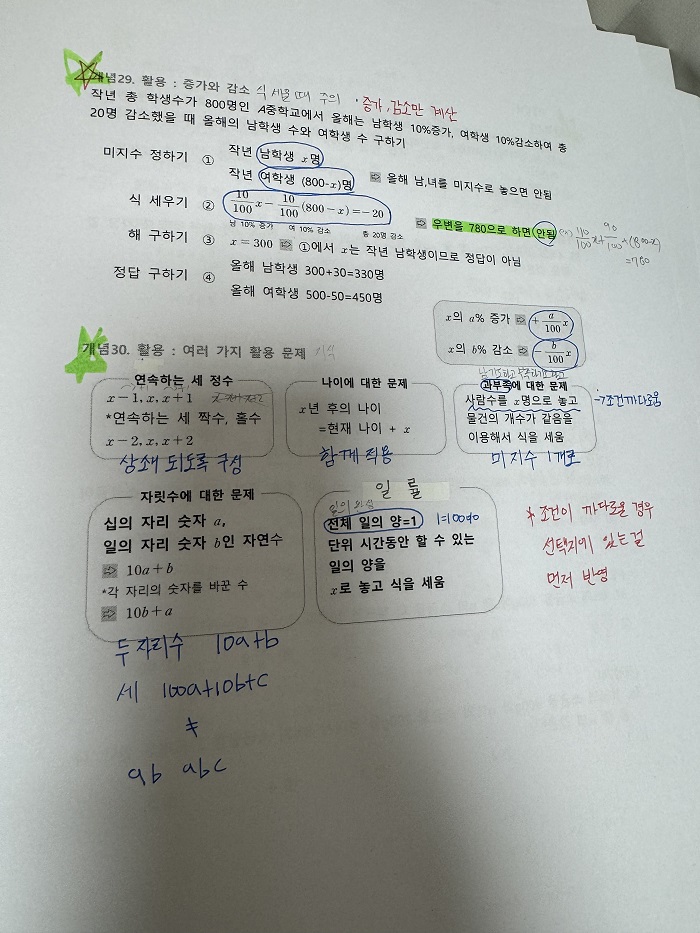 개념29. 활용 : 증가와 감소 식 세울 때 주의 · 증가, 감소만 계산
작년 총 학생수가 800명인 A중학교에서 올해는 남학생 10%증가, 여학생 10%감소하여 총
20명 감소했을 때 올해의 남학생 수와 여학생 수 구하기
미지수 정하기 ① 작년 남학생 x명
작년 여학생 (800-x)명 ⇨ 올해 남,녀를 미지수로 놓으면 안됨
식 세우기 ② 10/100 x - 10/100 (800-x) = -20 ⇨ 우변을 780으로 하면 안됨
남 10% 증가 여 10% 감소 총 20명 감소
110/100 x + 90/100 × (800-x)
=780
해 구하기 ③ x = 300 ⇨ ①에서 x는 작년 남학생이므로 정답이 아님
정답 구하기 ④ 올해 남학생 300+30=330명
올해 여학생 500-50=450명
x의 a% 증가 ⇨ + a/100 x
x의 b% 감소 ⇨ - b/100 x
개념30. 활용 : 여러 가지 활용 문제
연속하는 세 정수
x-1, x, x+1
*연속하는 세 짝수, 홀수
x-2, x, x+2
상쇄 되도록 구성
나이에 대한 문제
x년 후의 나이
=현재 나이 + x
함께 적용
과부족에 대한 문제
사람수를 x명으로 놓고
물건의 개수가 같음을
이용해서 식을 세움
→조건까다로움
미지수 1개로
자릿수에 대한 문제
십의 자리 숫자 a,
일의 자리 숫자 b인 자연수
⇨ 10a+b
*각 자리의 숫자를 바꾼 수
⇨ 10b+a
일 률
전체 일의 양=1 1=100%
단위 시간동안 할 수 있는
일의 양을
x로 놓고 식을 세움
* 조건이 까다로울 경우
선택지에 있는걸
먼저 반영
두 자리수 10a+b
세 100a+10b+c
≠
ab abc